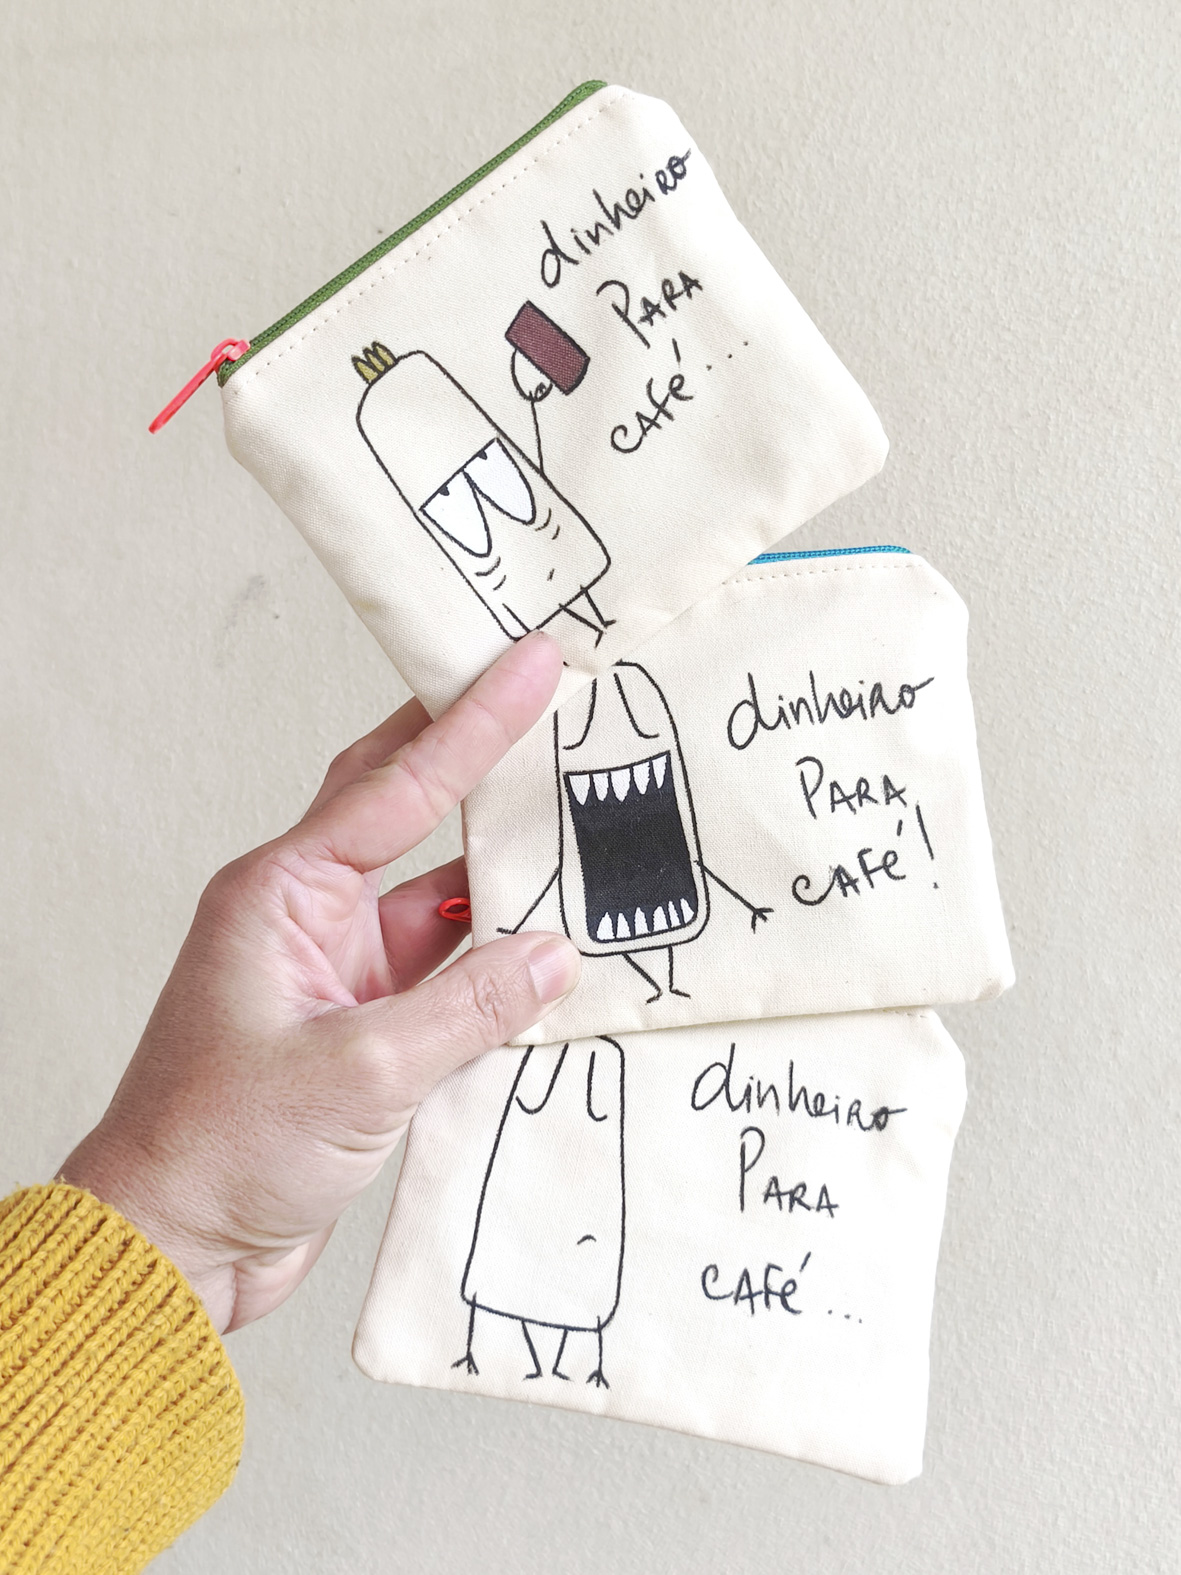 dinheiro
PARA
CAFé...
dinheiro
PARA
CAFé!
dinheiro
PARA
CAFé...